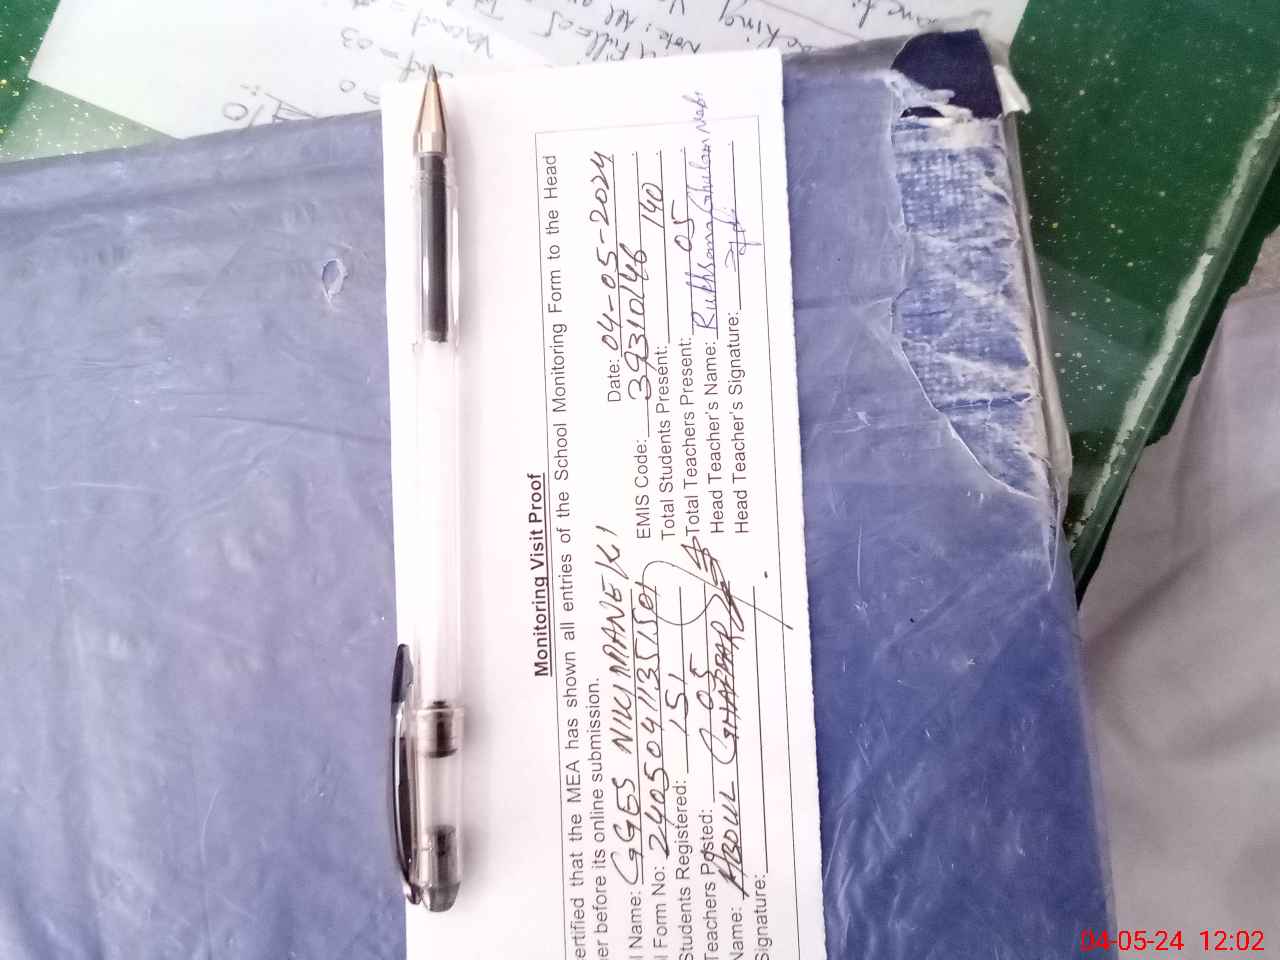 Monitoring Visit Proof
ertified that the MEA has shown all entries of the School Monitoring Form to the Head
er before its online submission.
l Name: GGES NIKUMANEKI Date: 04-05-2024
l Form No: EMIS Code: 39310146
Students Registered: 151 Total Students Present: 140
Teachers Posted: 05 Total Teachers Present: 05
Name: ABDUL GHAFFAR Head Teacher's Name: Rukhsana Ghulam Nabi
Signature: Head Teacher's Signature:
Note: all
= 03
04-05-24 12:02